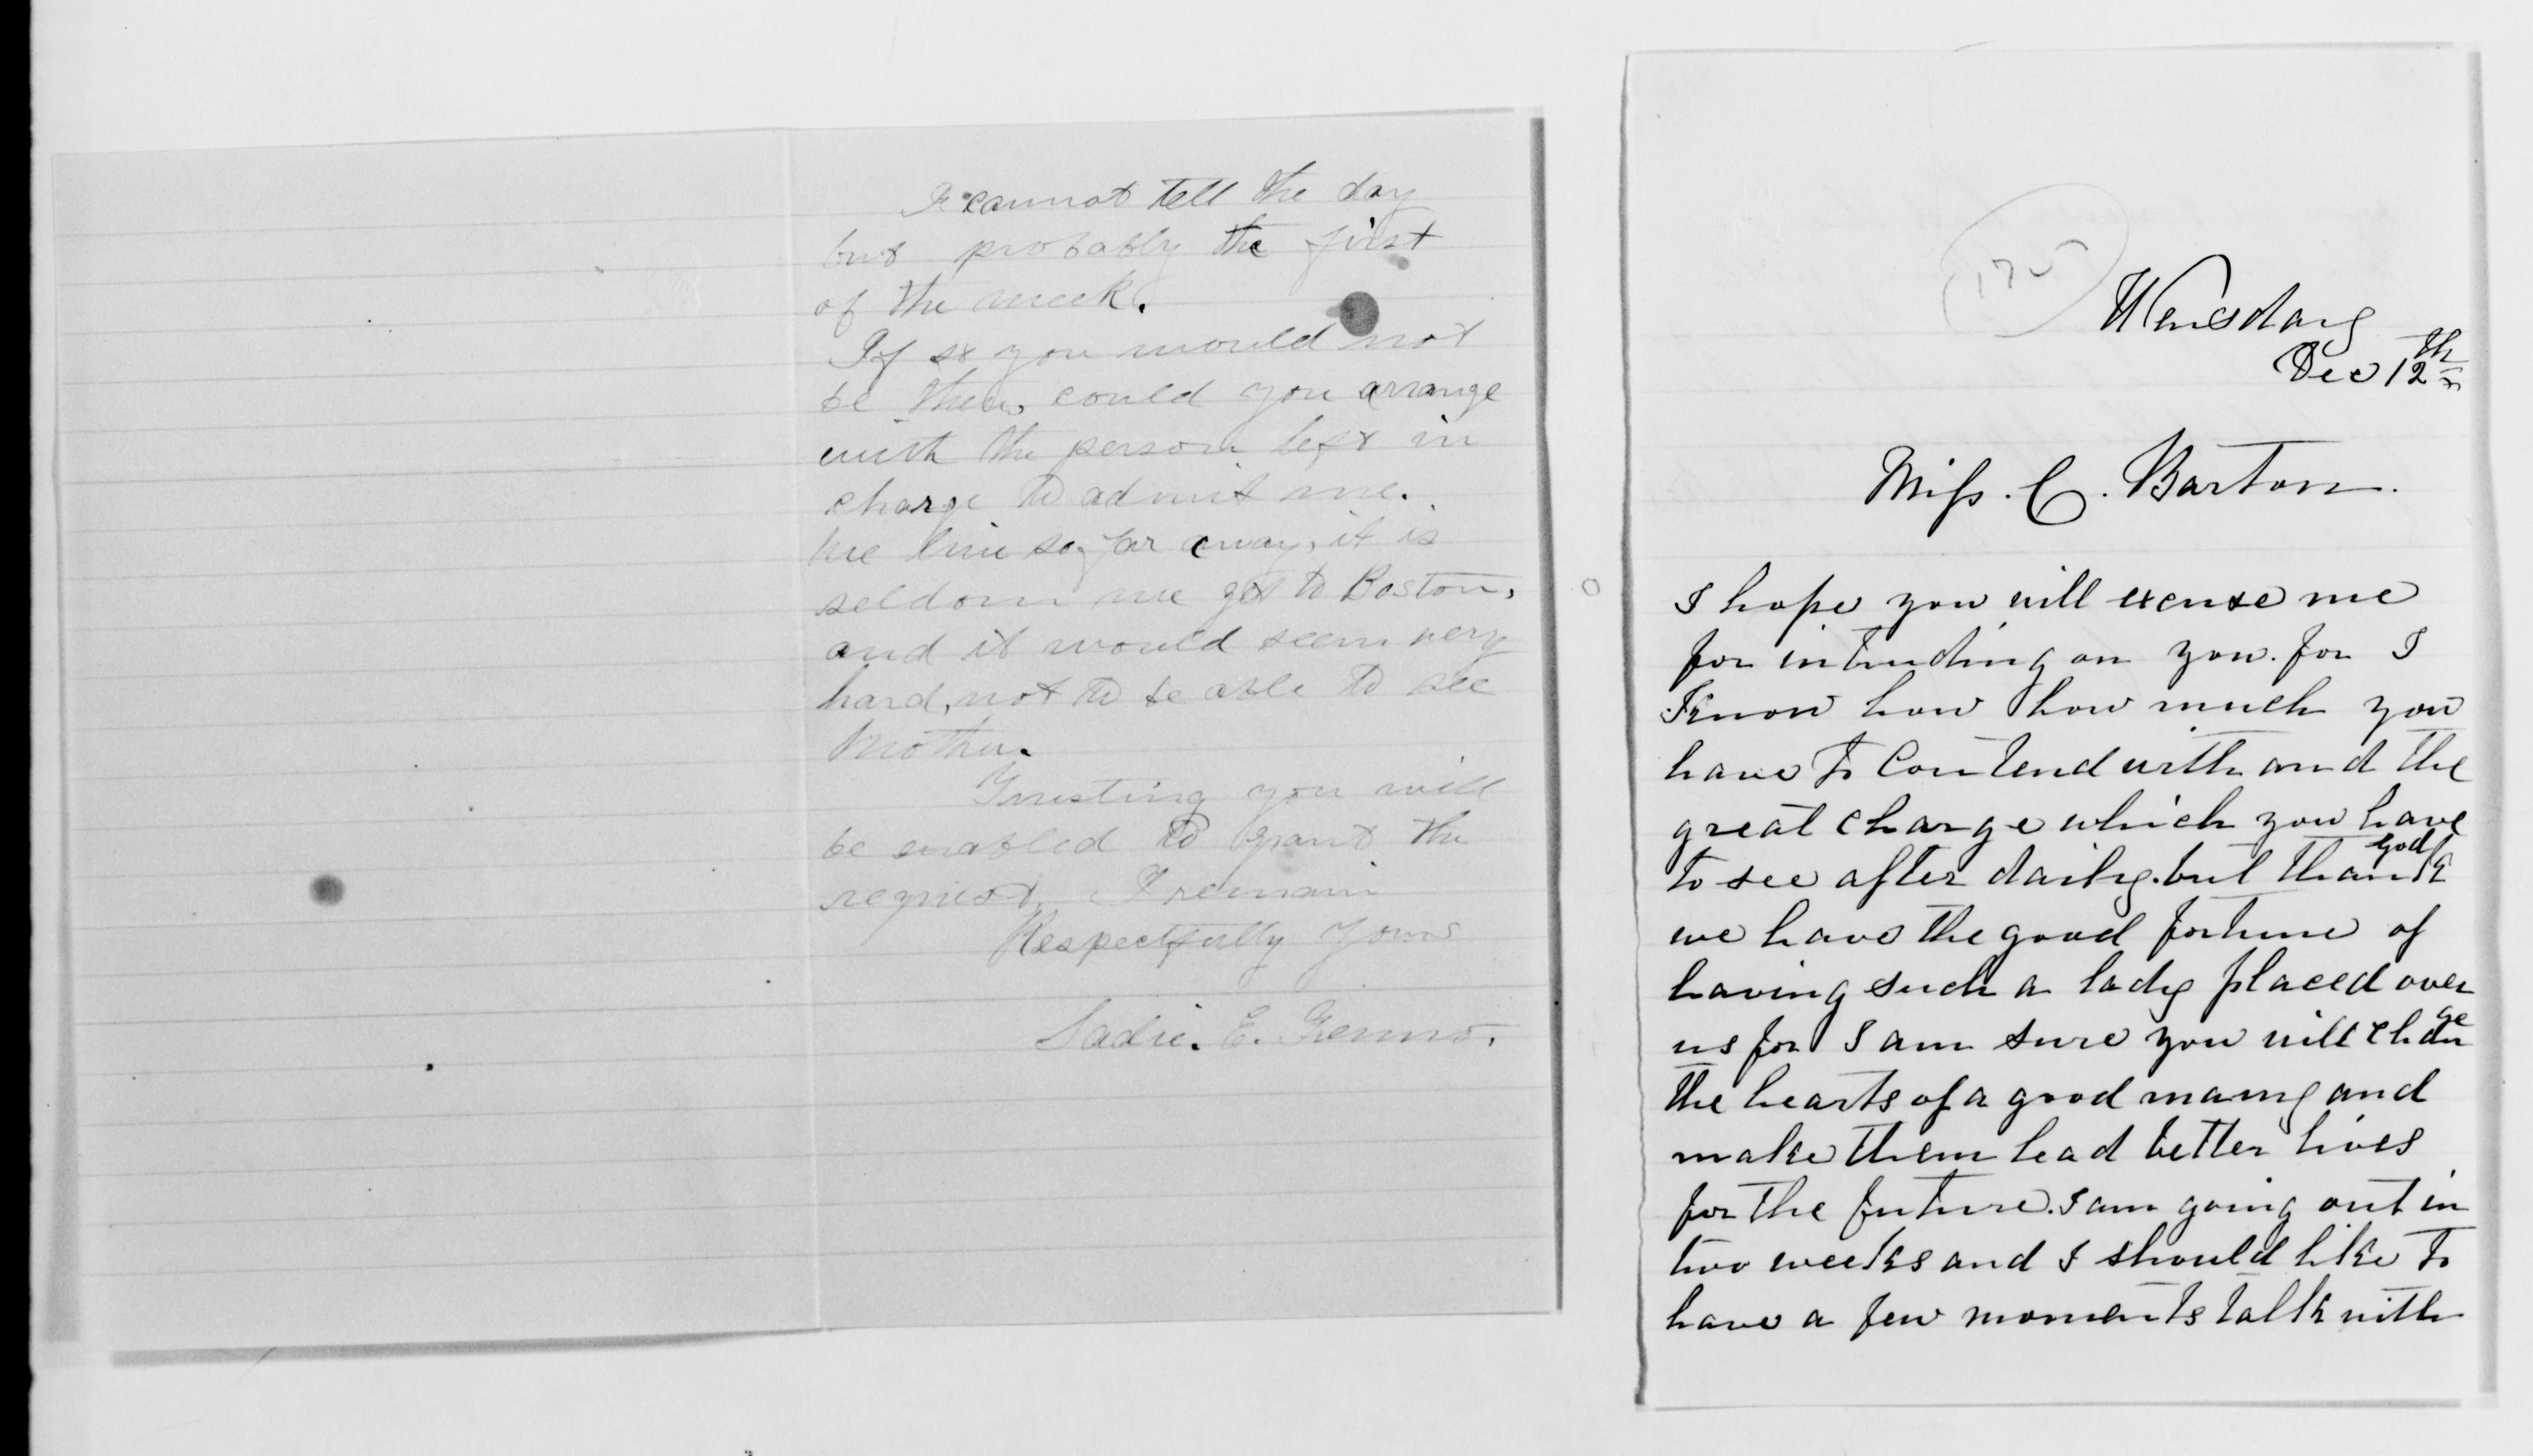 I cannot tell the day
but probably the first
of the week.
If so you would not
be there, could you arrange
with the person left in
charge to admit me.
We live so far away, it is
seldom we get to Boston,
and it would seem very
hard, not to be able to see
Mother.
Trusting you will
be enabled to grant the
request, I remain
Respectfully Yours
Sadie. E.
Wensday
Dec 12th
Miss. C. Barton.
I hope you will excuse me
for intruding on you. for I
Know how how much you
have to Contend with and the
great charge which you have
to see after daily. but thank god
we have the good fortune of
having such a lady placed over
us for I am sure you will change
the hearts of a good many and
make them lead better lives
for the future. I am going out in
two weeks and I should like to
have a few moments talk with